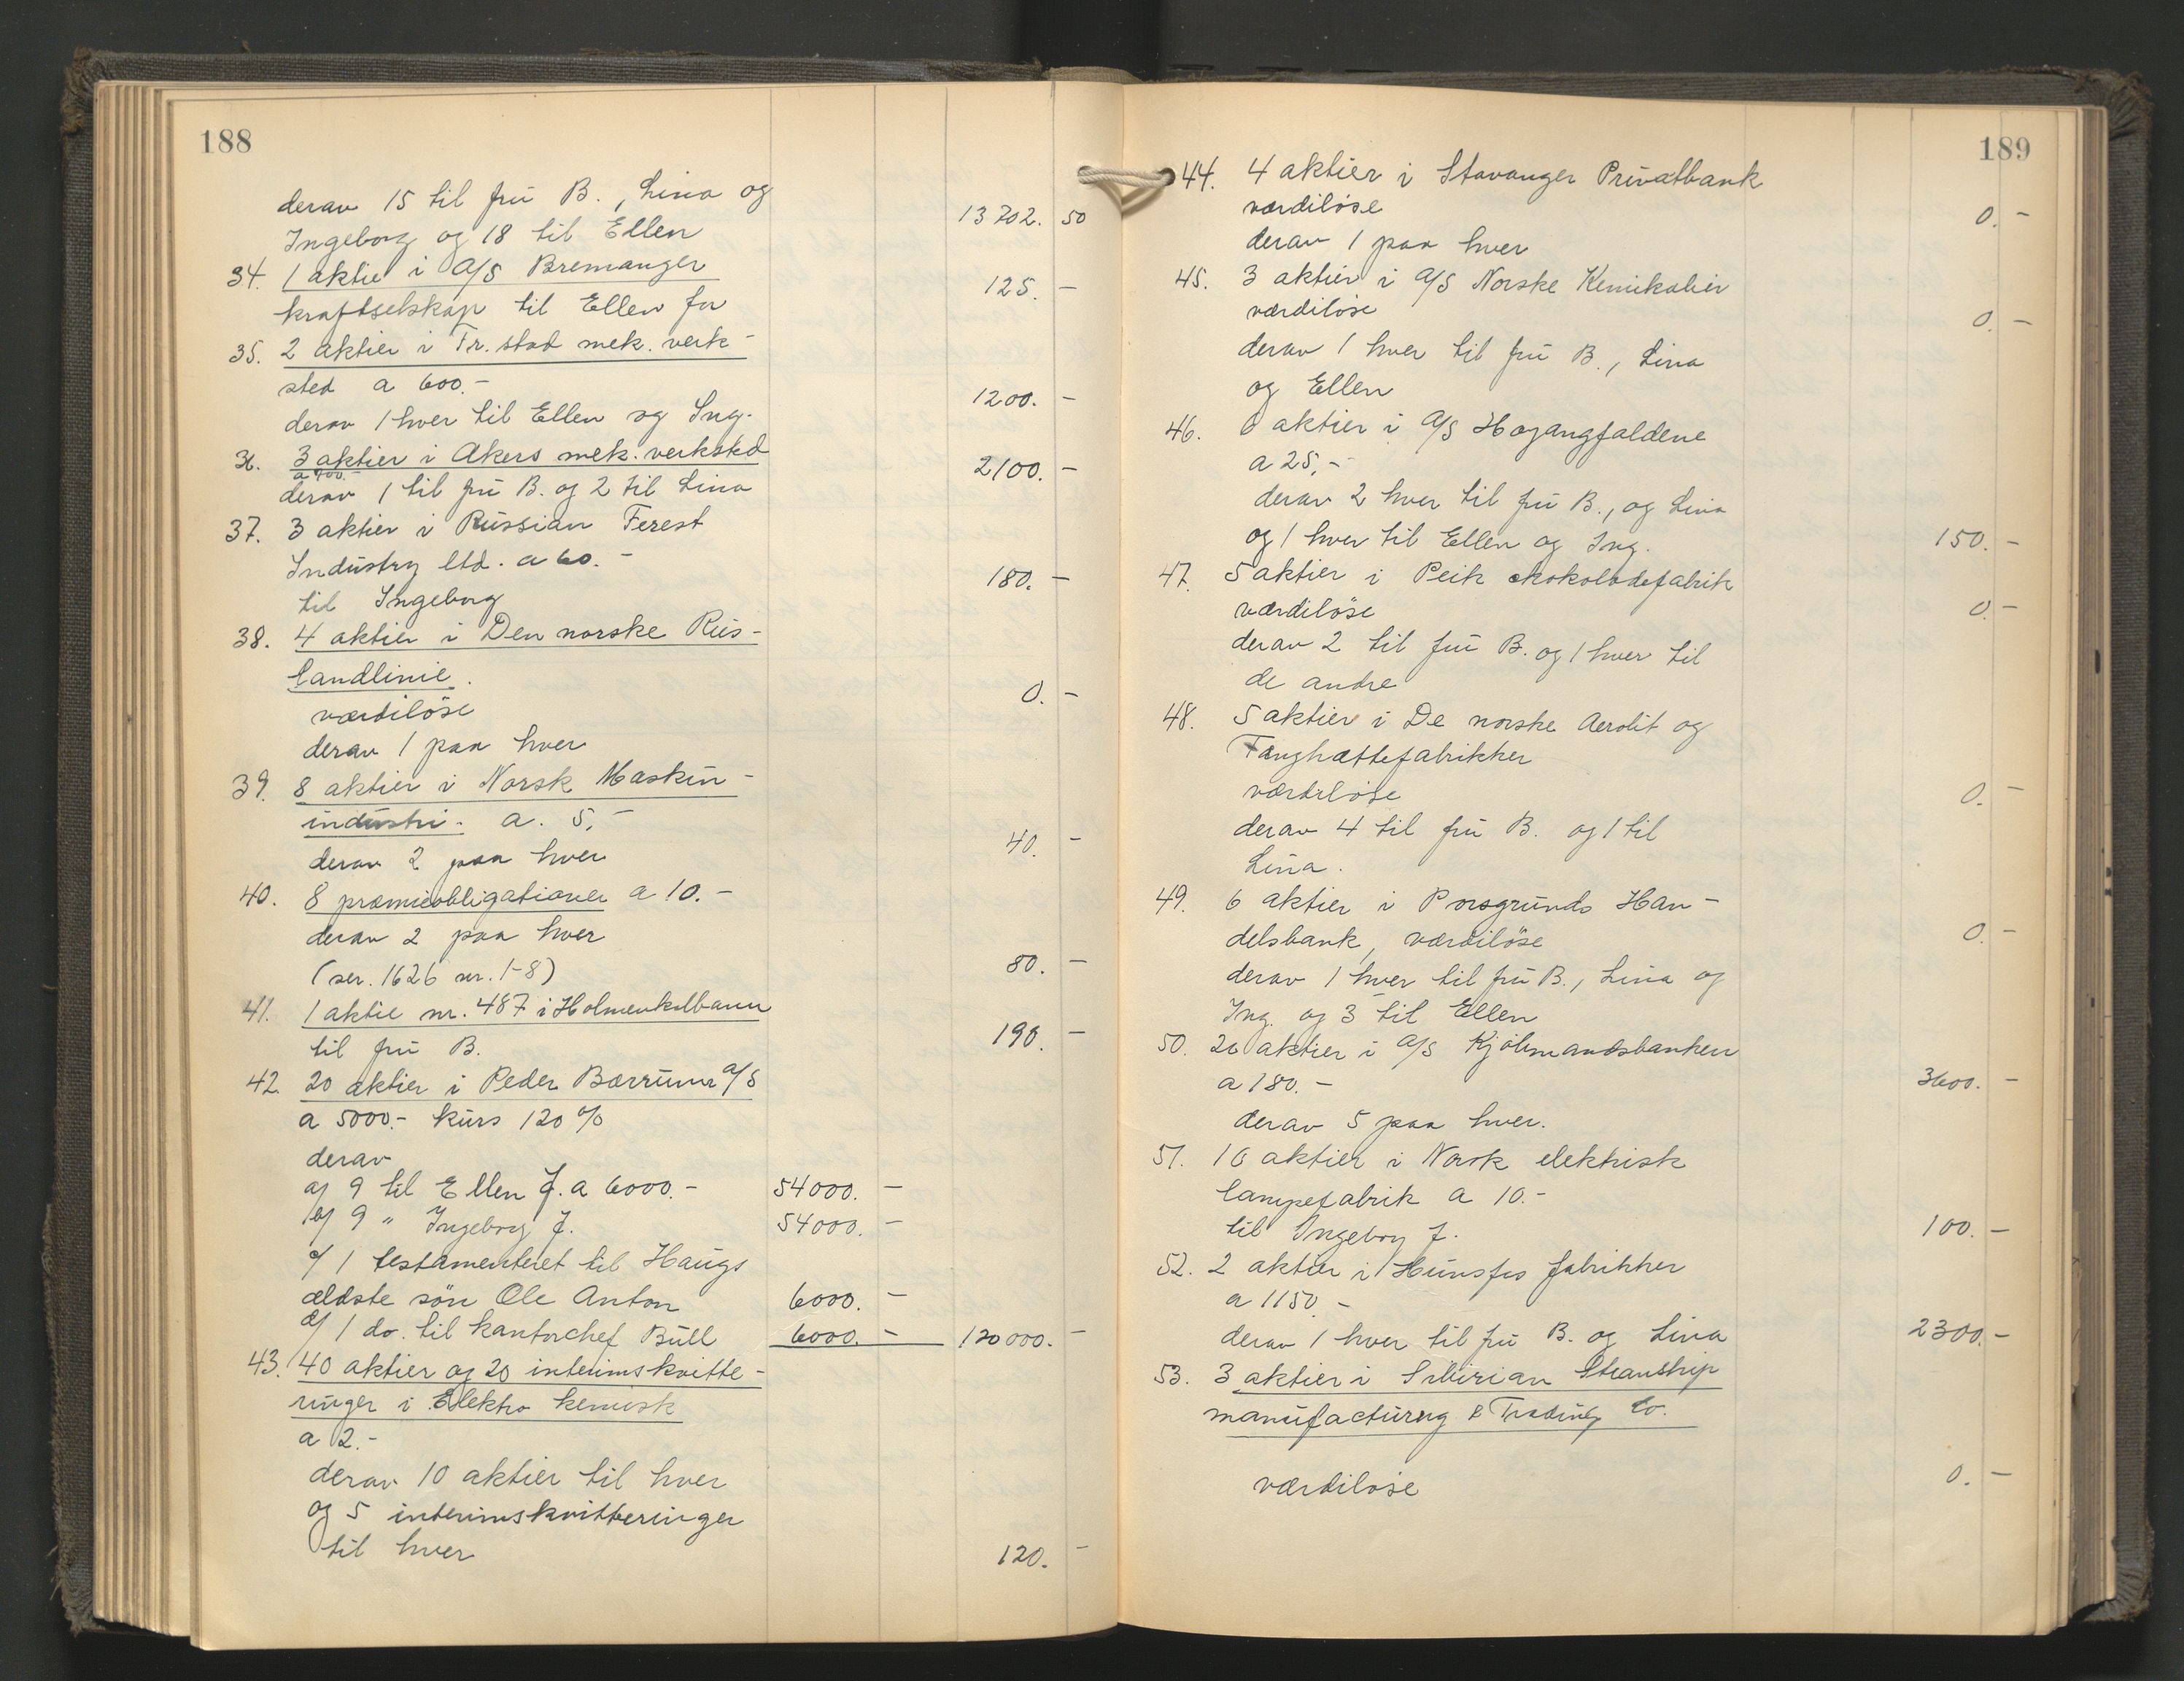 188
derav 15 til frü B., Lina og
Ingeborg og 18 til Ellen 13702. 50
34. 1 aktie i A/S Bremanger
kraftselskap til Ellen for 125. -
35. 2 aktier i Fr.stad mek. verk-
sted a 600.-
derav 1 hver til Ellen og Ing. 1200. -
36. 3 aktier i Akers mek. verksted
a 700.-
derav 1 til frü B. og 2 til Lina 2100. -
37. 3 aktier i Russian Forest
Industry ltd. a 60.-
til Ingeborg 180. -
38. 4 aktier i Den norske Rus-
landlinie.
værdiløse 0. -
derav 1 paa hver
39. 8 aktier i Norsk Maskin-
industri. a. 5.-
derav 2 paa hver 40. -
40. 8 præmieobligationer a 10.-
derav 2 paa hver
(ser. 1626 nr. 1-8) 80. -
41. 1 aktie nr. 487 i Holmenkolbanen
til frü B. 190. -
42. 20 aktier i Peder Bærrum A/S
a 5000.- kürs 120 %
derav
a/ 9 til Ellen J. a 6000.- 54000. -
b/ 9 " Ingeborg J. 54000. -
c/ 1 testamenteret til Haugs
ældste søn Ole Anton 6000. -
d/ 1 do. til kontorchef Büll 6000. - 120000. -
43. 40 aktier og 20 interimskvitte-
ringer i Elektro kemisk
a 2.-
derav 10 aktier til hver
og 5 interimskvitteringer
til hver 120. -
189
44. 4 aktier i Stavanger Privatbank
værdiløse 0. -
derav 1 paa hver
45. 3 aktier i A/S Norske Kemikalier
værdiløse 0. -
derav 1 hver til frü B., Lina
og Ellen
46. 6 aktier i A/S Høyangfaldene
a 25.-
derav 2 hver til frü B., og Lina
og 1 hver til Ellen og Ing. 150. -
47. 5 aktier i Peik chokoladefabrik
værdiløse 0. -
derav 2 til frü B. og 1 hver til
de andre
48. 5 aktier i De norske Aerolit og
Fænghættefabrikker
værdiløse 0. -
derav 4 til frü B. og 1 til
Lina.
49. 6 aktier i Porsgrunds Han-
delsbank, værdiløse 0. -
derav 1 hver til frü B., Lina og
Ing. og 3 til Ellen
50. 20 aktier i A/S Kjøbmandsbanken
a 180.- 3600. -
derav 5 paa hver.
51. 10 aktier i Norsk elektrisk
lampefabrik a 10.-
til Ingeborg J. 100. -
52. 2 aktier i Hunsfos fabrikker
a 1150.-
derav 1 hver til frü B. og Lina 2300. -
53. 3 aktier i Sibirian Steamship
manufacturing & Trading Co.
værdiløse 0. -